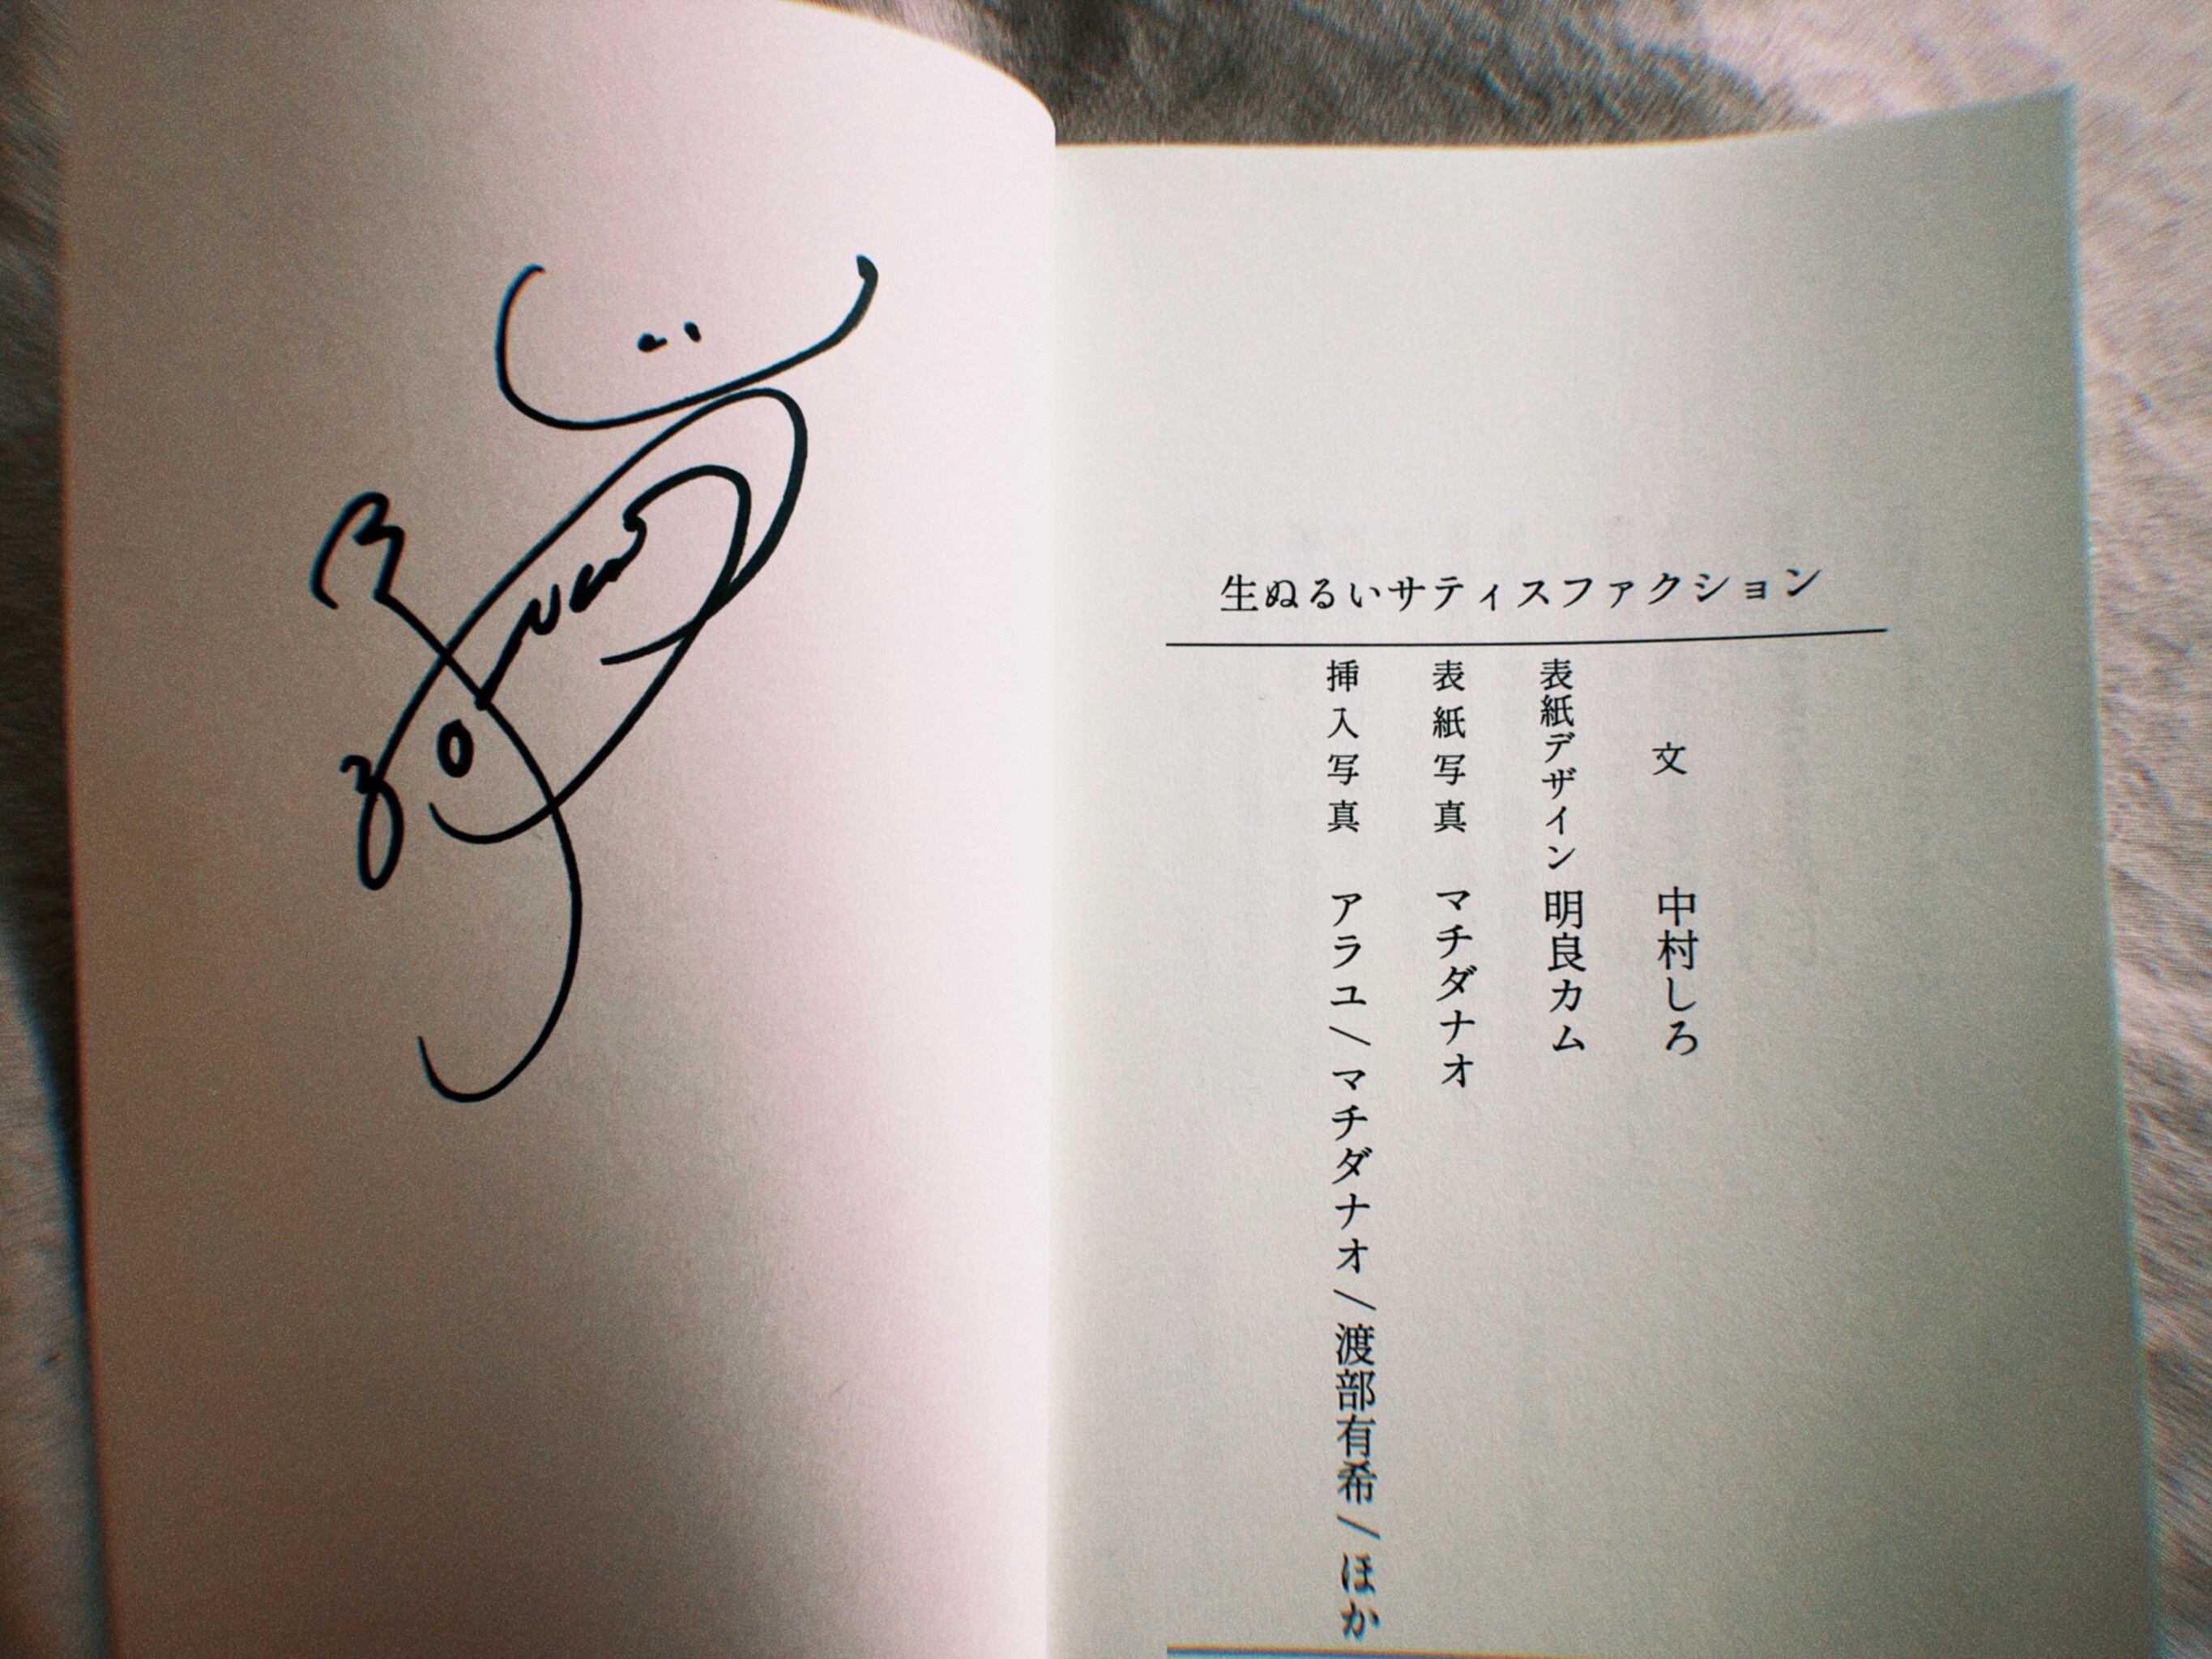 生ぬるいサティスファクション
文 中村しろ
表紙デザイン 明良カム
表紙写真 マチダナオ
挿入写真 アラユ/マチダナオ/渡部有希/ほか